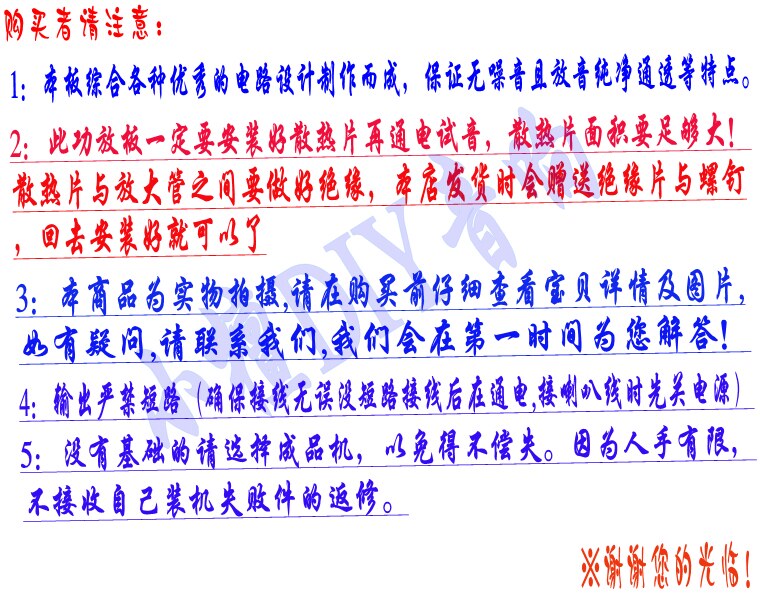 购买者请注意：
1：本板综合各种优秀的电路设计制作而成，保证无噪音且放音纯净通透等特点。
2：此功放板一定要安装好散热片再通电试音，散热片面积要足够大！
散热片与放大管之间要做好绝缘，本店发货时会赠送绝缘片与螺钉
，回去安装好就可以了
3：本商品为实物拍摄,请在购买前仔细查看宝贝详情及图片,
如有疑问,请联系我们,我们会在第一时间为您解答！
4：输出严禁短路（确保接线无误没短路接线后在通电,接喇叭线时先关电源）
5：没有基础的请选择成品机，以免得不偿失。因为人手有限，
不接收自己装机失败件的返修。
※谢谢您的光临！